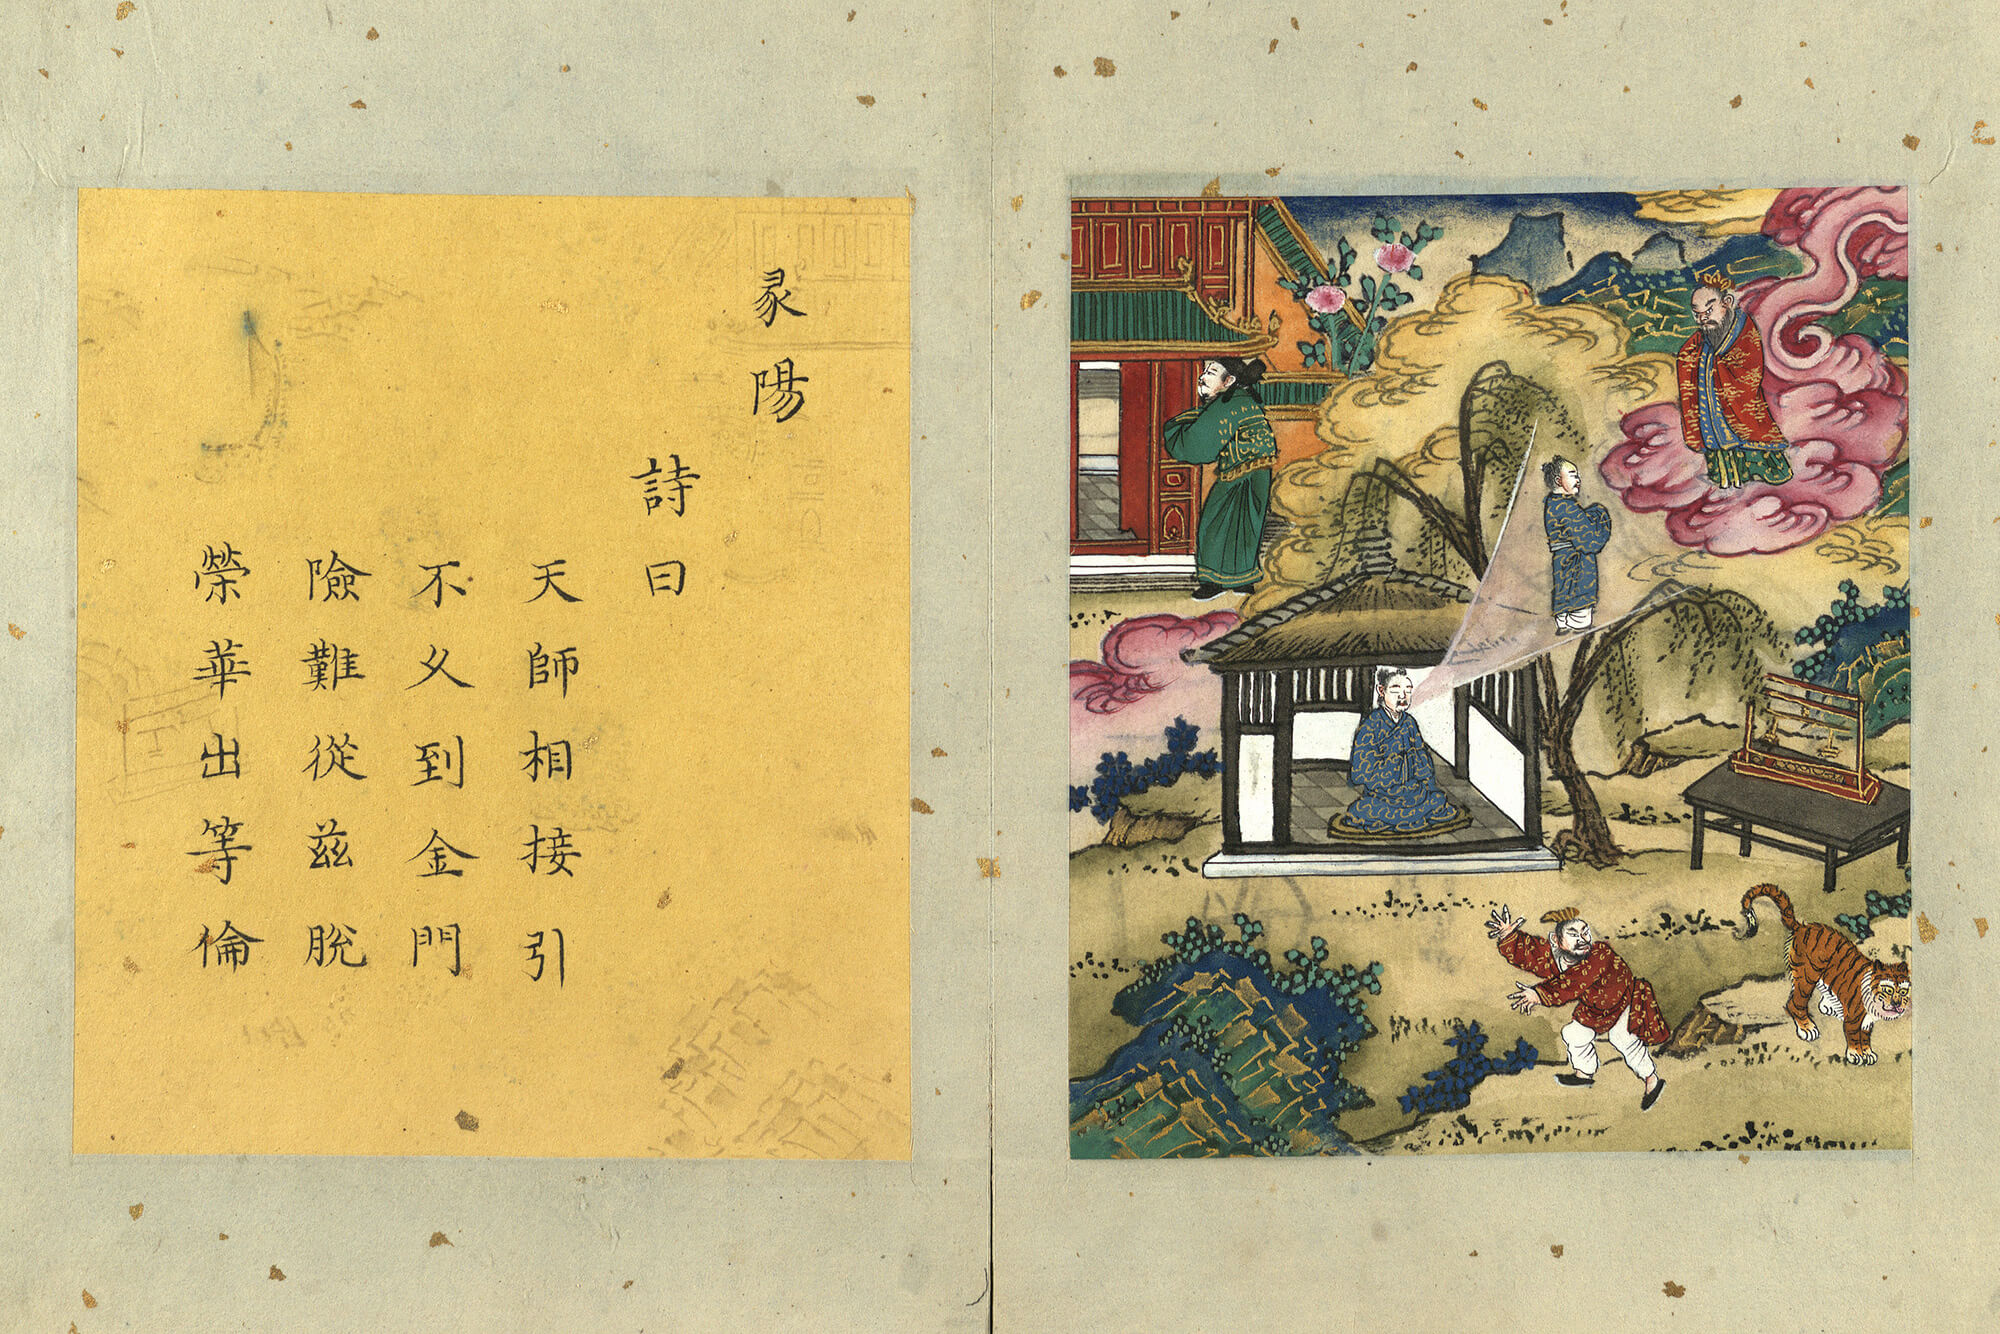 彖陽
詩曰
天師相接引
不乆到金門
險難從茲脫
榮華出等倫